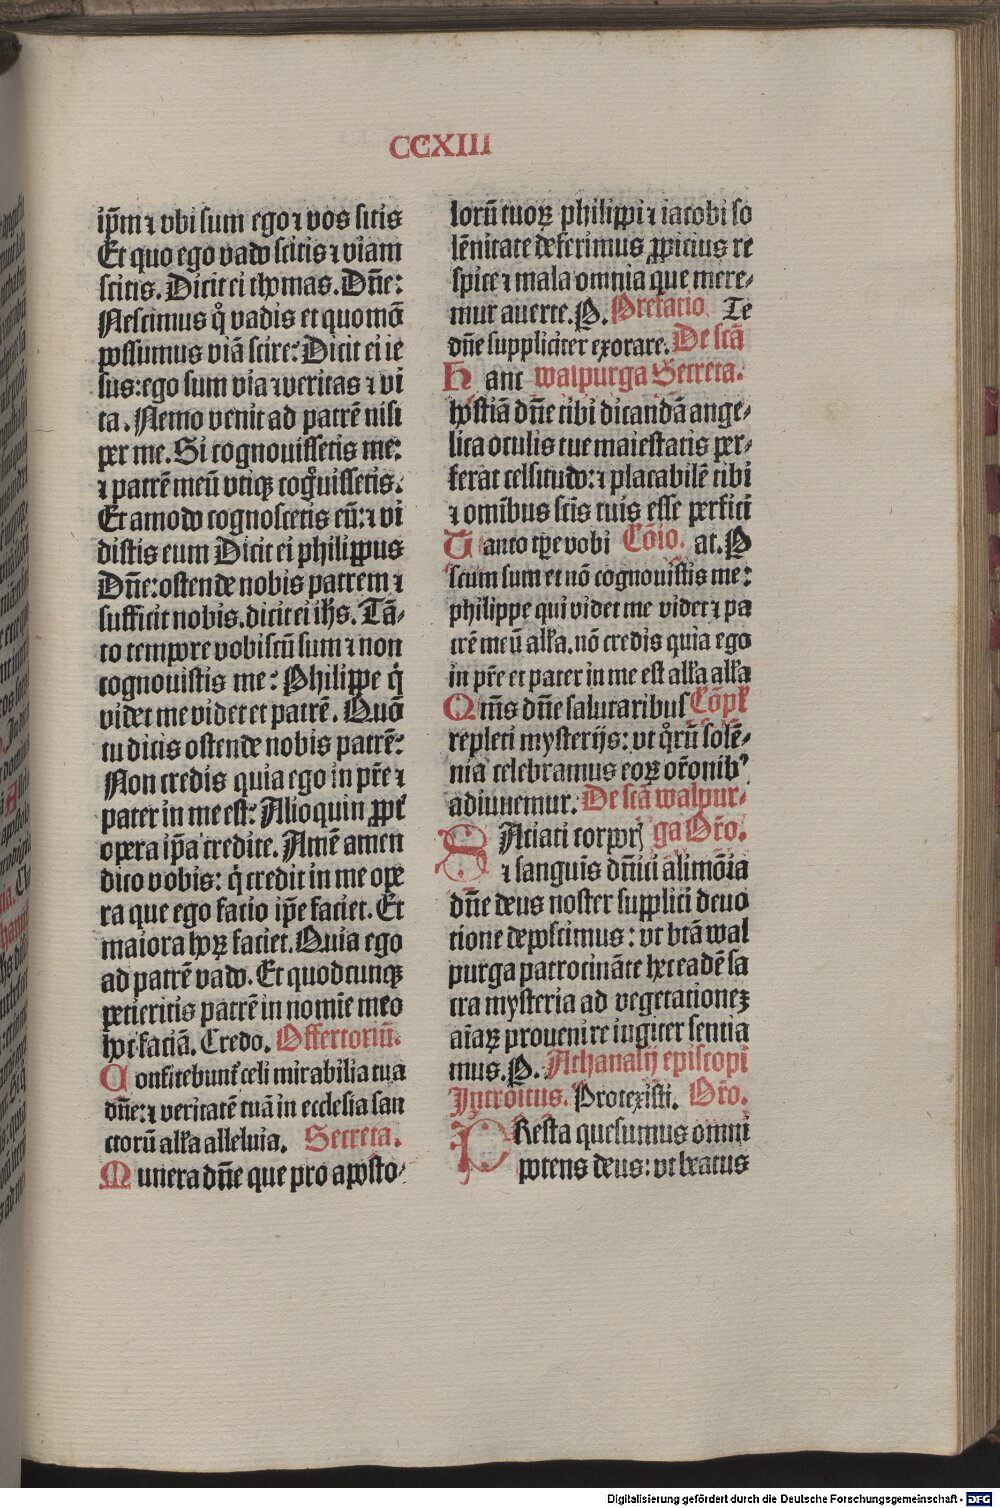 CCXIII
ip̄m ⁊ vbi sum ego ⁊ vos sitis
Et quo ego vado scitis ⁊ viam
scitis. Dicit ei thomas. Dn̄e:
Nescimus qͦ vadis et quomō
possumus viā scire: Dicit ei ie
sus: ego sum via ⁊ veritas ⁊ vi
ta. Nemo venit ad patrē nisi
per me. Si cognouissetis me:
⁊ patrē meū vtiqꝫ cogͦuissetis.
Et amodo cognoscetis eū: ⁊ vi
distis eum Dicit ei philippus
Dn̄e: ostende nobis patrem ⁊
sufficit nobis. dicit ei ih̄s. Tā-
to tempore vobiscū sum ⁊ non
cognouistis me: Philippe q̇
videt me videt et patrē. Quō
tu dicis ostende nobis patrē:
Non credis quia ego in pr̄e ⁊
pater in me est: Alioquin ꝓpt̄
opera ip̄a credite. Amē amen
dico vobis: q̇ credit in me ope
ra que ego facio ip̄e faciet. Et
maiora hoꝝ faciet. Quia ego
ad patrē vado. Et quodcunqꝫ
petieritis patrē in nomīe meo
hoc faciā. Credo. Offertoriū.
Confitebunt̄ celi mirabilia tua
dn̄e: ⁊ veritatē tuā in ecclesia san
ctorū all̄a alleluia. Secreta.
Munera dn̄e que pro aposto-
lorū tuoꝝ philippi ⁊ iacobi so
lēnitate deferimus ꝓpicius re
spice ⁊ mala omnia que mere-
mur auerte. P. Prefatio. Te
dn̄e suppliciter exorare. De sctā
Hanc walpurga Secreta.
hostiā dn̄e tibi dicandā ange-
lica oculis tue maiestatis per-
ferat celsitudo: ⁊ placabilē tibi
⁊ omībus sctīs tuis esse perfici
Tanto tꝑe vobi Cōio. at. P
scum sum et nō cognouistis me:
philippe qui videt me videt ⁊ pa
trē meū all̄a. nō credis quia ego
in pr̄e et pater in me est all̄a all̄a
Qm̄s dn̄e salutaribus Cōpl̄
repleti mysterijs: vt qͦrū solē-
nia celebramus eoꝝ or̄onibꝰ
adiuuemur. De sctā walpur-
SAtiati corporis ga Or̄o.
⁊ sanguīs dn̄ici alimōia
dn̄e deus noster supplici deuo
tione deposcimus: vt btā wal
purga patrocināte hec eadē sa
cra mysteria ad vegetationeꝫ
aīaꝝ prouenire iugiter sentia
mus. P. Athanasij episcopi
Introitus. Protexisti. Or̄o.
PResta quesumus omni
potens deus: vt beatus
Digitalisierung gefördert durch die Deutsche Forschungsgemeinschaft - DFG